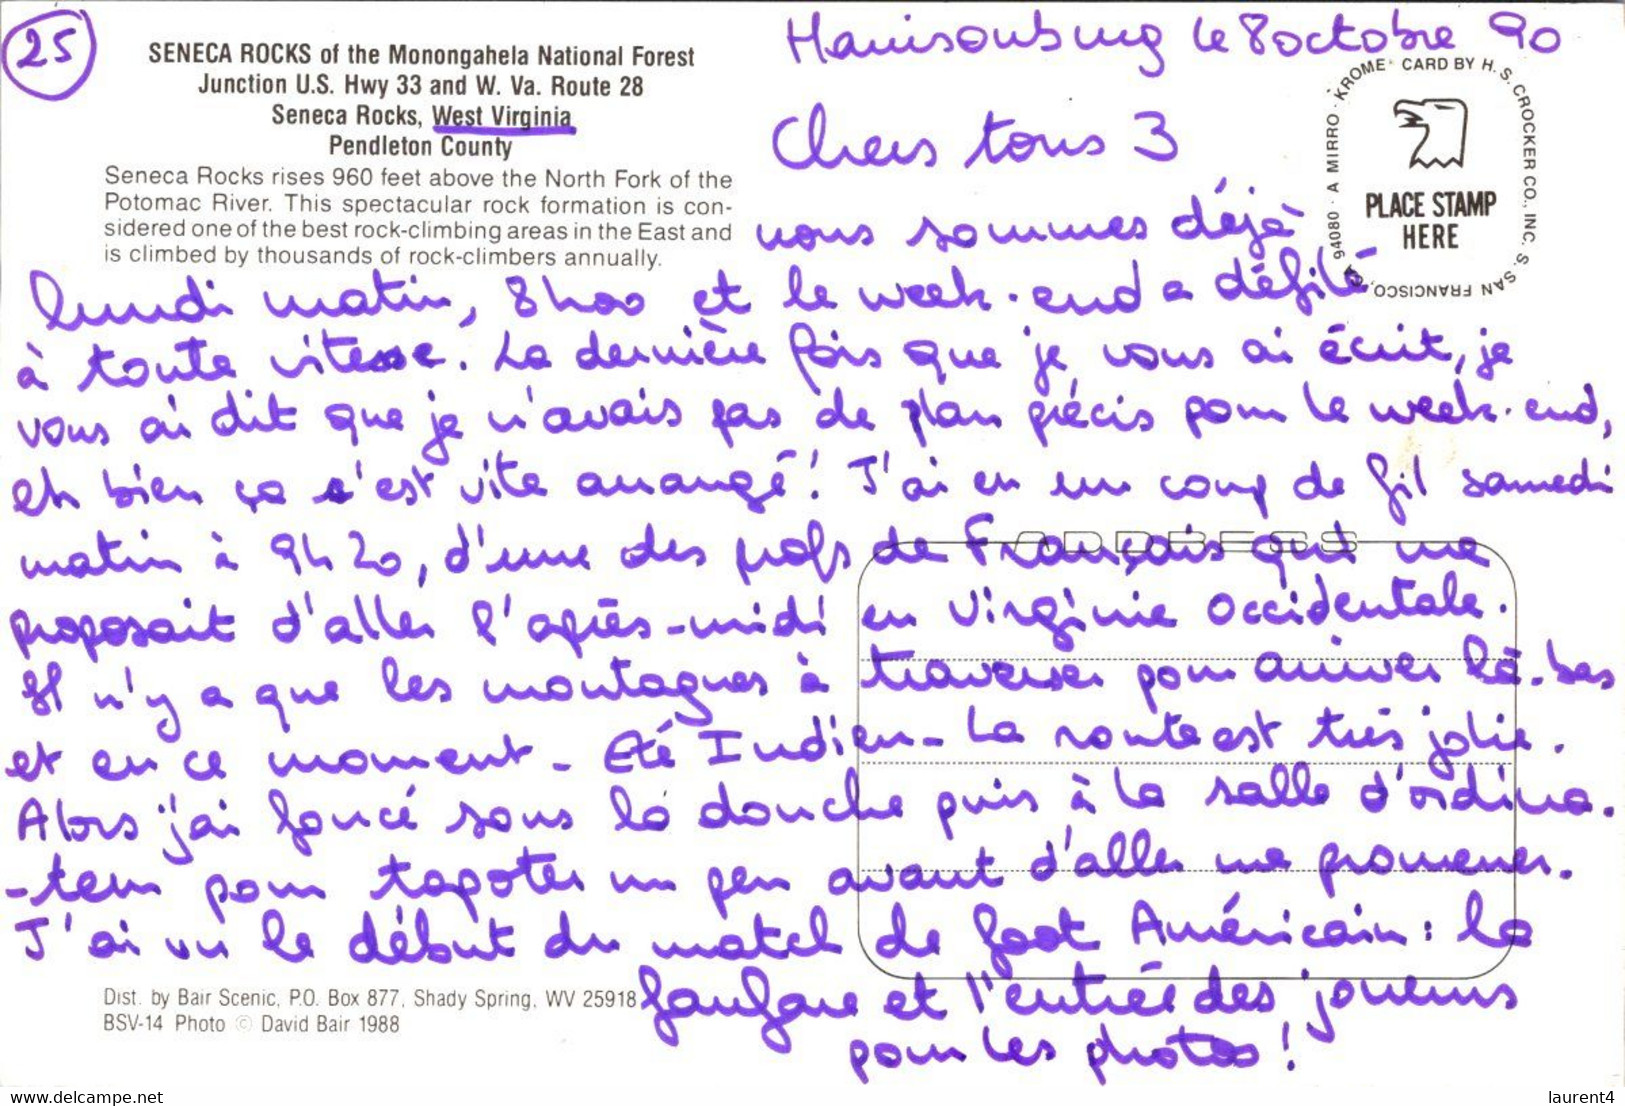 25
SENECA ROCKS of the Monongahela National Forest
Junction U.S. Hwy 33 and W. Va. Route 28
Seneca Rocks, West Virginia
Pendleton County
Seneca Rocks rises 960 feet above the North Fork of the
Potomac River. This spectacular rock formation is con-
sidered one of the best rock-climbing areas in the East and
is climbed by thousands of rock-climbers annually.
Harrisonburg le 8 octobre 90
KROME CARD BY H. S. CROCKER CO., INC. S. SAN FRANCISCO, CA 94080 · A MIRRO ·
PLACE STAMP
HERE
Chers tous 3
nous sommes déjà
lundi matin, 8h00 et le week-end a défilé
à toute vitesse. La dernière fois que je vous ai écrit, je
vous ai dit que je n'avais pas de plan précis pour le week-end,
eh bien ça s'est vite arrangé ! J'ai eu un coup de fil samedi
matin à 9h20, d'une des profs de Français qui me
proposait d'aller l'après-midi en Virginie Occidentale.
Il n'y a que les montagnes à traverser pour arriver là-bas
et en ce moment - Eté Indien - La route est très jolie.
Alors j'ai foncé sous la douche puis à la salle d'ordina-
-teur pour tapoter un peu avant d'aller me promener.
J'ai vu le début du match de foot Américain : la
fanfare et l'entrée des joueurs
pour les photos !
ADDRESS
Dist. by Bair Scenic, P.O. Box 877, Shady Spring, WV 25918
BSV-14 Photo © David Bair 1988
www.delcampe.net
laurent4